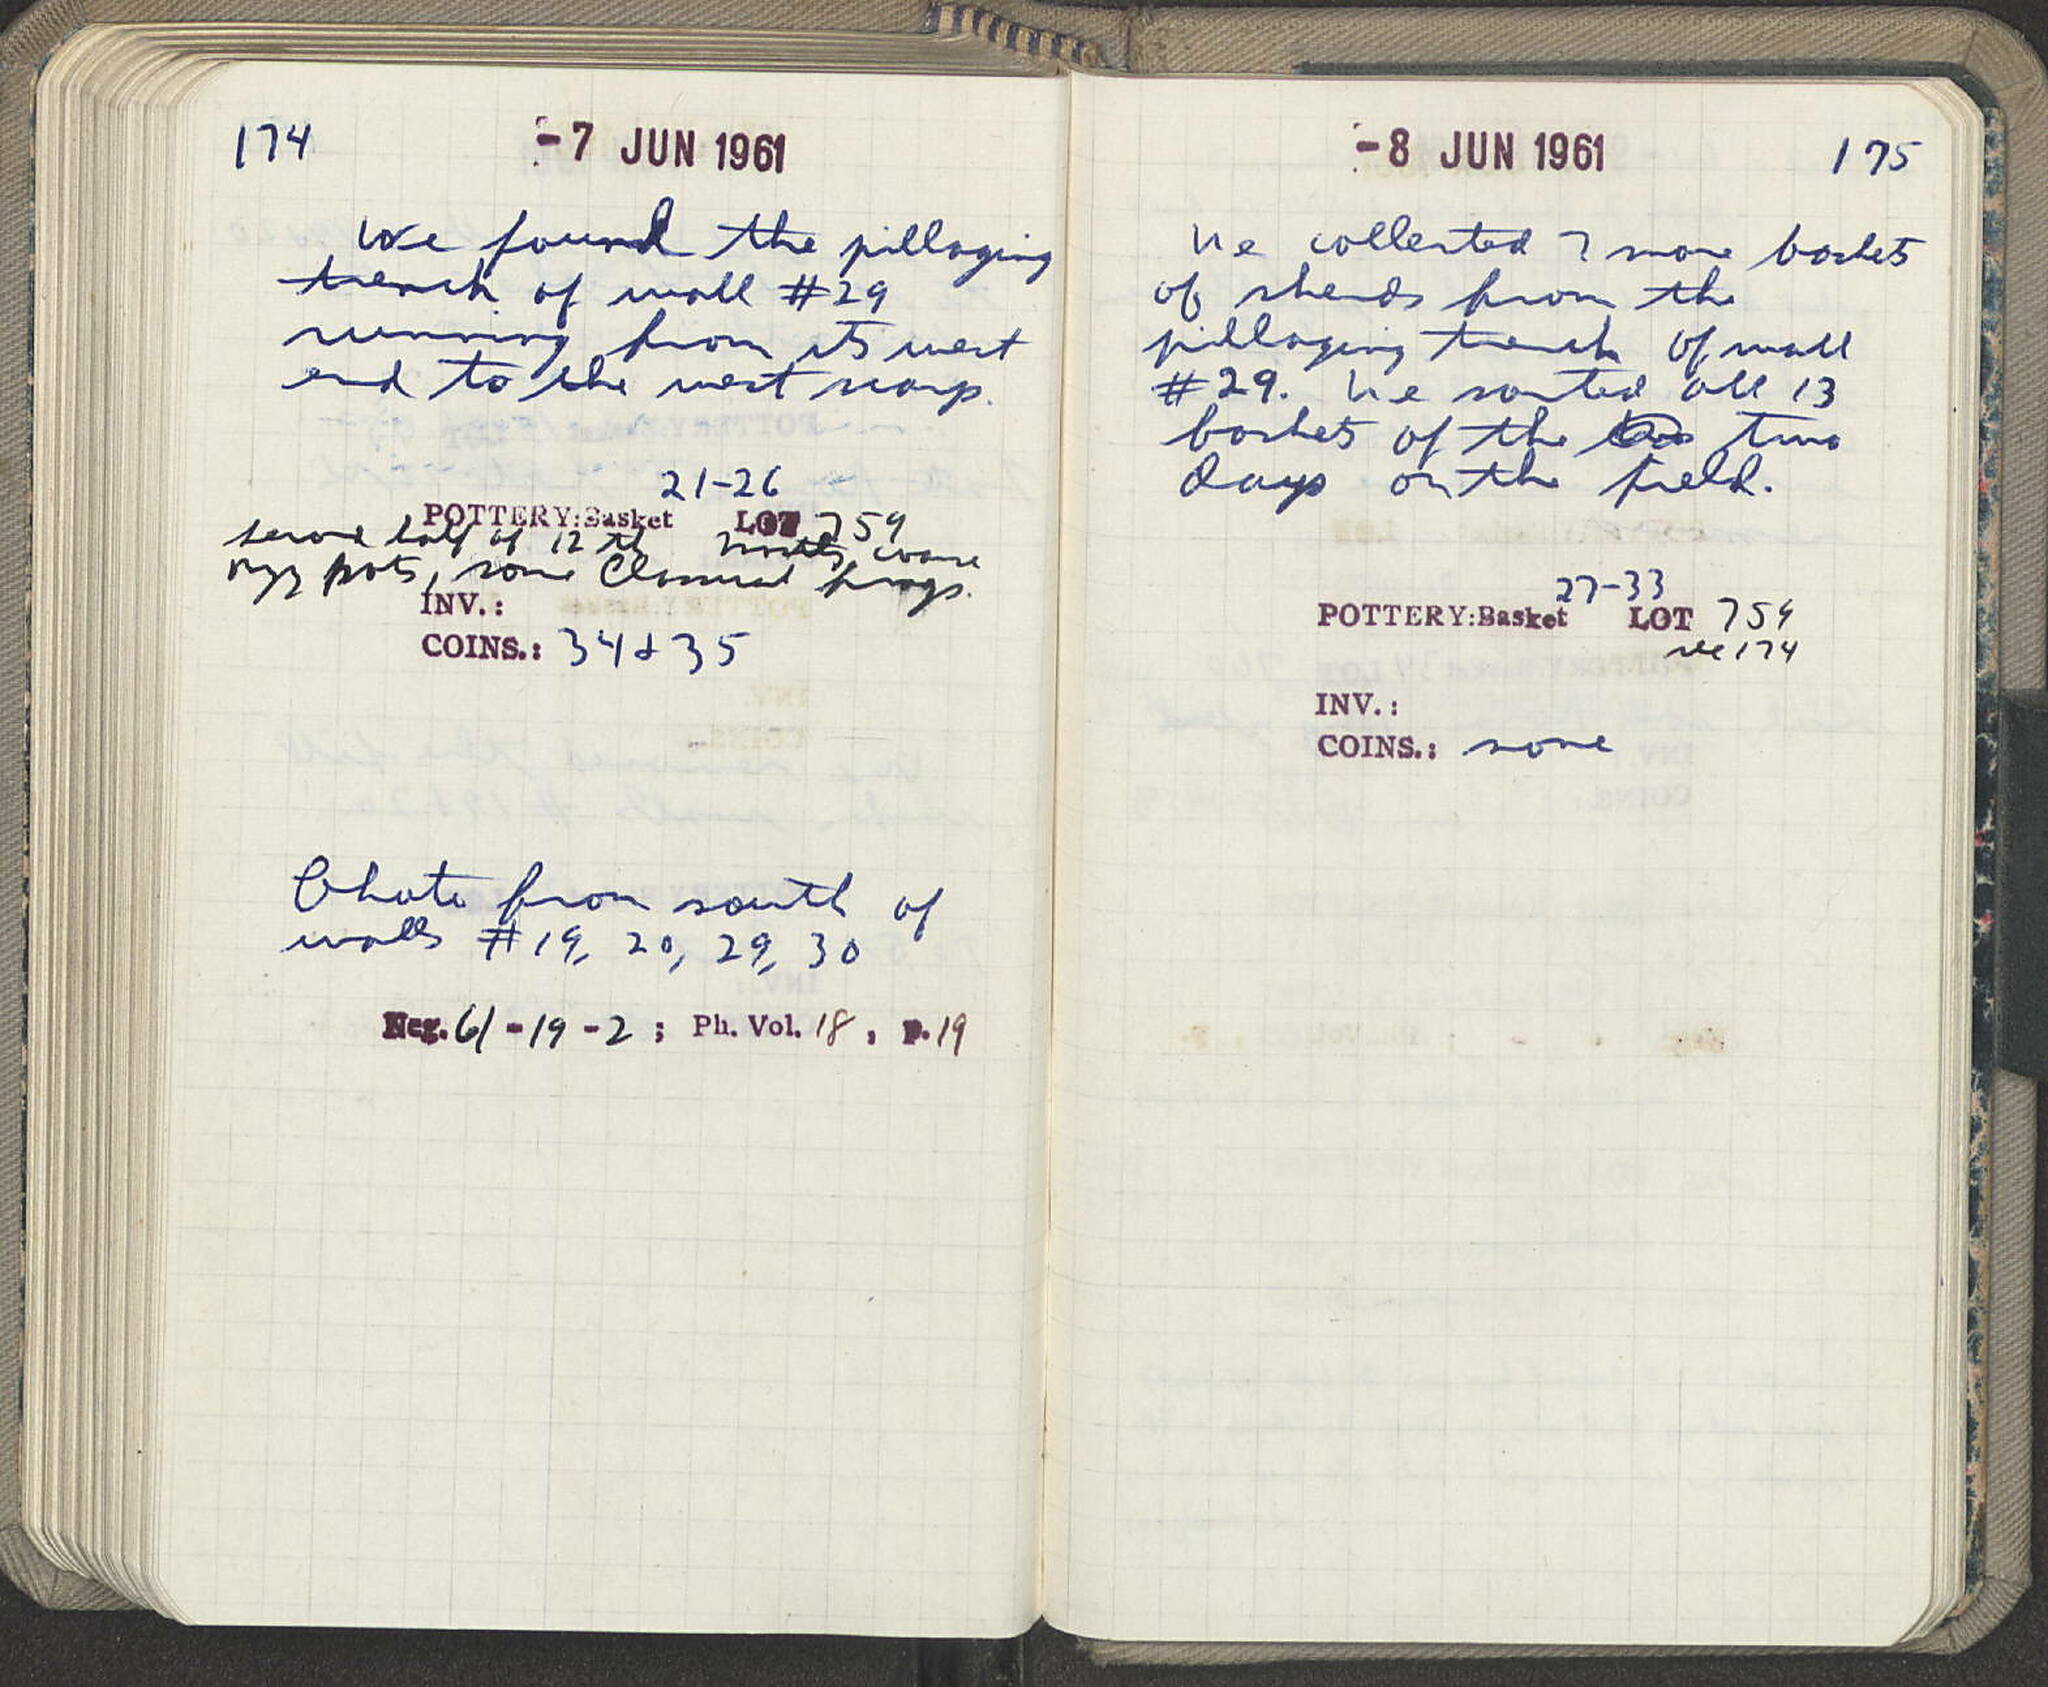 174
-7 JUN 1961
We found the pillaging
trench of wall #29
running from its west
end to the west scarp.
21-26
POTTERY: Basket LOT 759
second half of 12th mostly coarse
byz pots, some Classical frags.
INV.:
COINS.: 34 & 35
Photo from south of
walls #19, 20, 29, 30
Neg. 61-19-2 ; Ph. Vol. 18, p. 19
-8 JUN 1961
175
We collected 7 more baskets
of sherds from the
pillaging trench of wall
#29. We sorted all 13
baskets of the two
days on the field.
27-33
POTTERY: Basket LOT 759
see 174
INV.:
COINS.: none